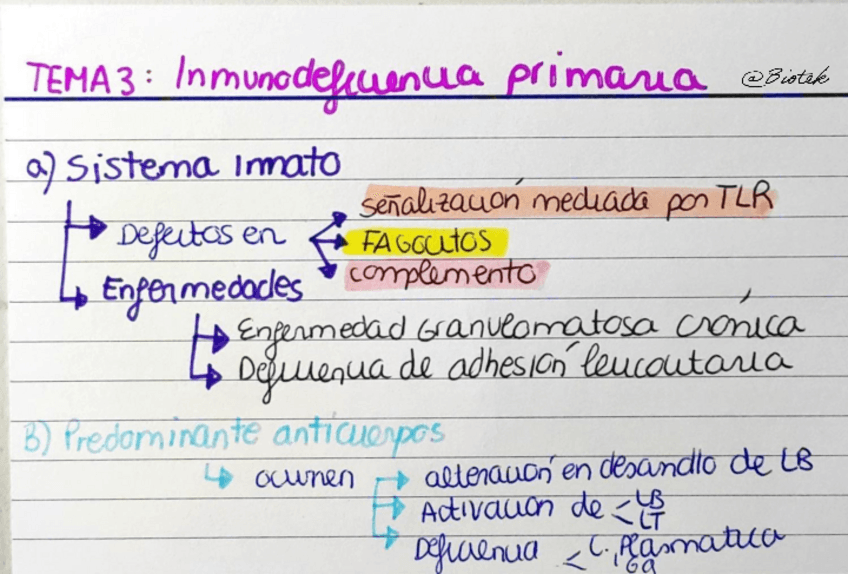 TEMA 3: Inmunodeficiencia primaria @Biotek
a) Sistema Innato
Defectos en
señalización mediada por TLR
FAGOCITOS
complemento
Enfermedades
Enfermedad Granulomatosa crónica
Deficiencia de adhesión leucocitaria
B) Predominante anticuerpos
ocurren
alteración en desarrollo de LB
Activación de < LB
LT
Deficiencia < C. Plasmatica
IGA